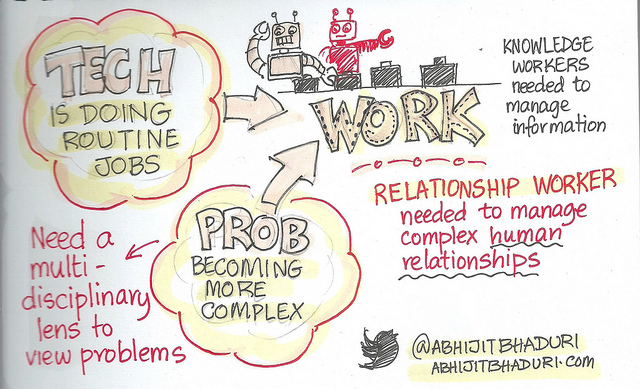 TECH
IS DOING
ROUTINE
JOBS
WORK
KNOWLEDGE
WORKERS
needed to
manage
information
RELATIONSHIP WORKER
needed to manage
complex human
relationships
PROB
BECOMING
MORE
COMPLEX
Need a
multi-
disciplinary
lens to
view problems
@ABHIJITBHADURI
ABHIJITBHADURI.COM